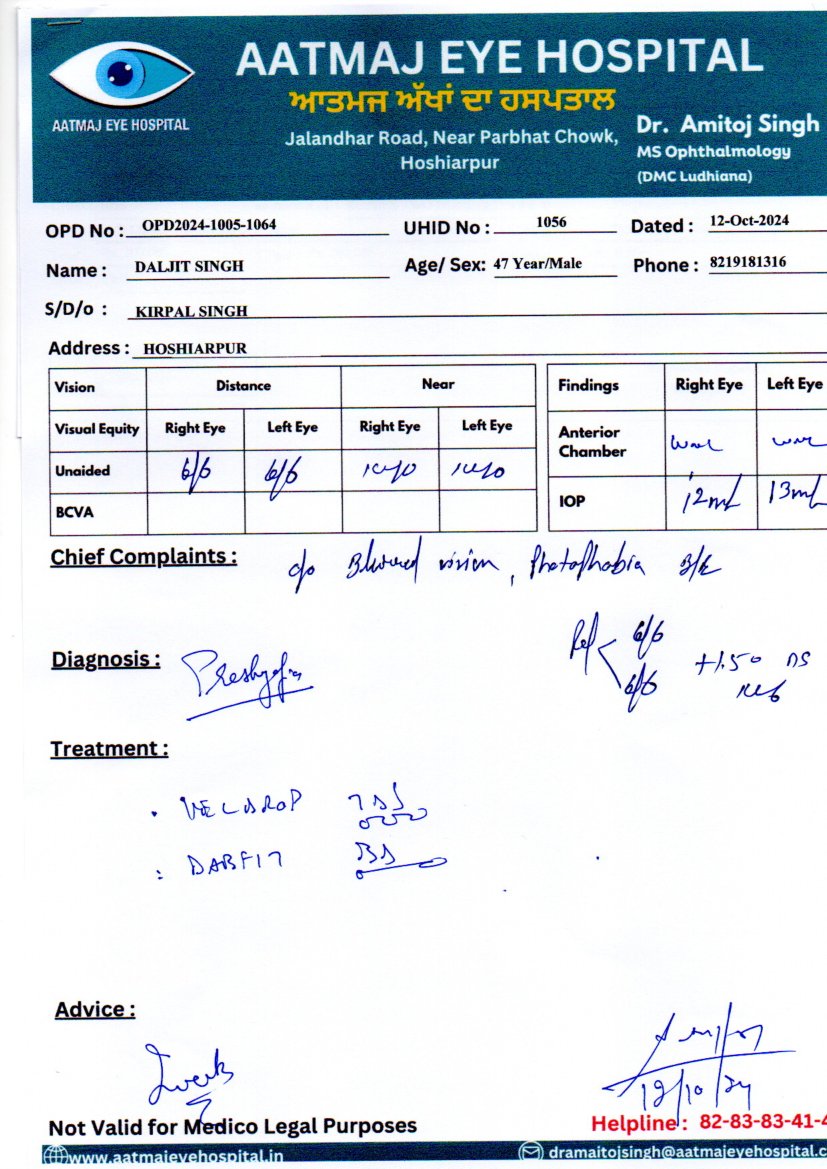 AATMAJ EYE HOSPITAL
ਆਤਮਜ ਅੱਖਾਂ ਦਾ ਹਸਪਤਾਲ
AATMAJ EYE HOSPITAL
Jalandhar Road, Near Parbhat Chowk,
Hoshiarpur
Dr. Amitoj Singh
MS Ophthalmology
(DMC Ludhiana)
OPD No : OPD2024-1005-1064 UHID No : 1056 Dated : 12-Oct-2024
Name : DALJIT SINGH Age/ Sex: 47 Year/Male Phone : 8219181316
S/D/o : KIRPAL SINGH
Address : HOSHIARPUR
Vision Distance Near
Visual Equity Right Eye Left Eye Right Eye Left Eye
Unaided 6/6 6/6
BCVA
Findings Right Eye Left Eye
Anterior Chamber
IOP 12 13
Chief Complaints : c/o Blurred vision, Photophobia B/E
Ref 6/6 6/6 +1.50 DS N6
Diagnosis :
Treatment :
. VELDROP
: DABFIT BD
Advice :
12/10/24
Not Valid for Medico Legal Purposes
Helpline : 82-83-83-41-4
www.aatmajeyehospital.in
dramaitojsingh@aatmajeyehospital.c